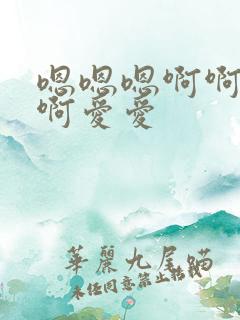 嗯嗯嗯啊啊
啊爱爱
華麗九尾蹣
未经同意禁止转载